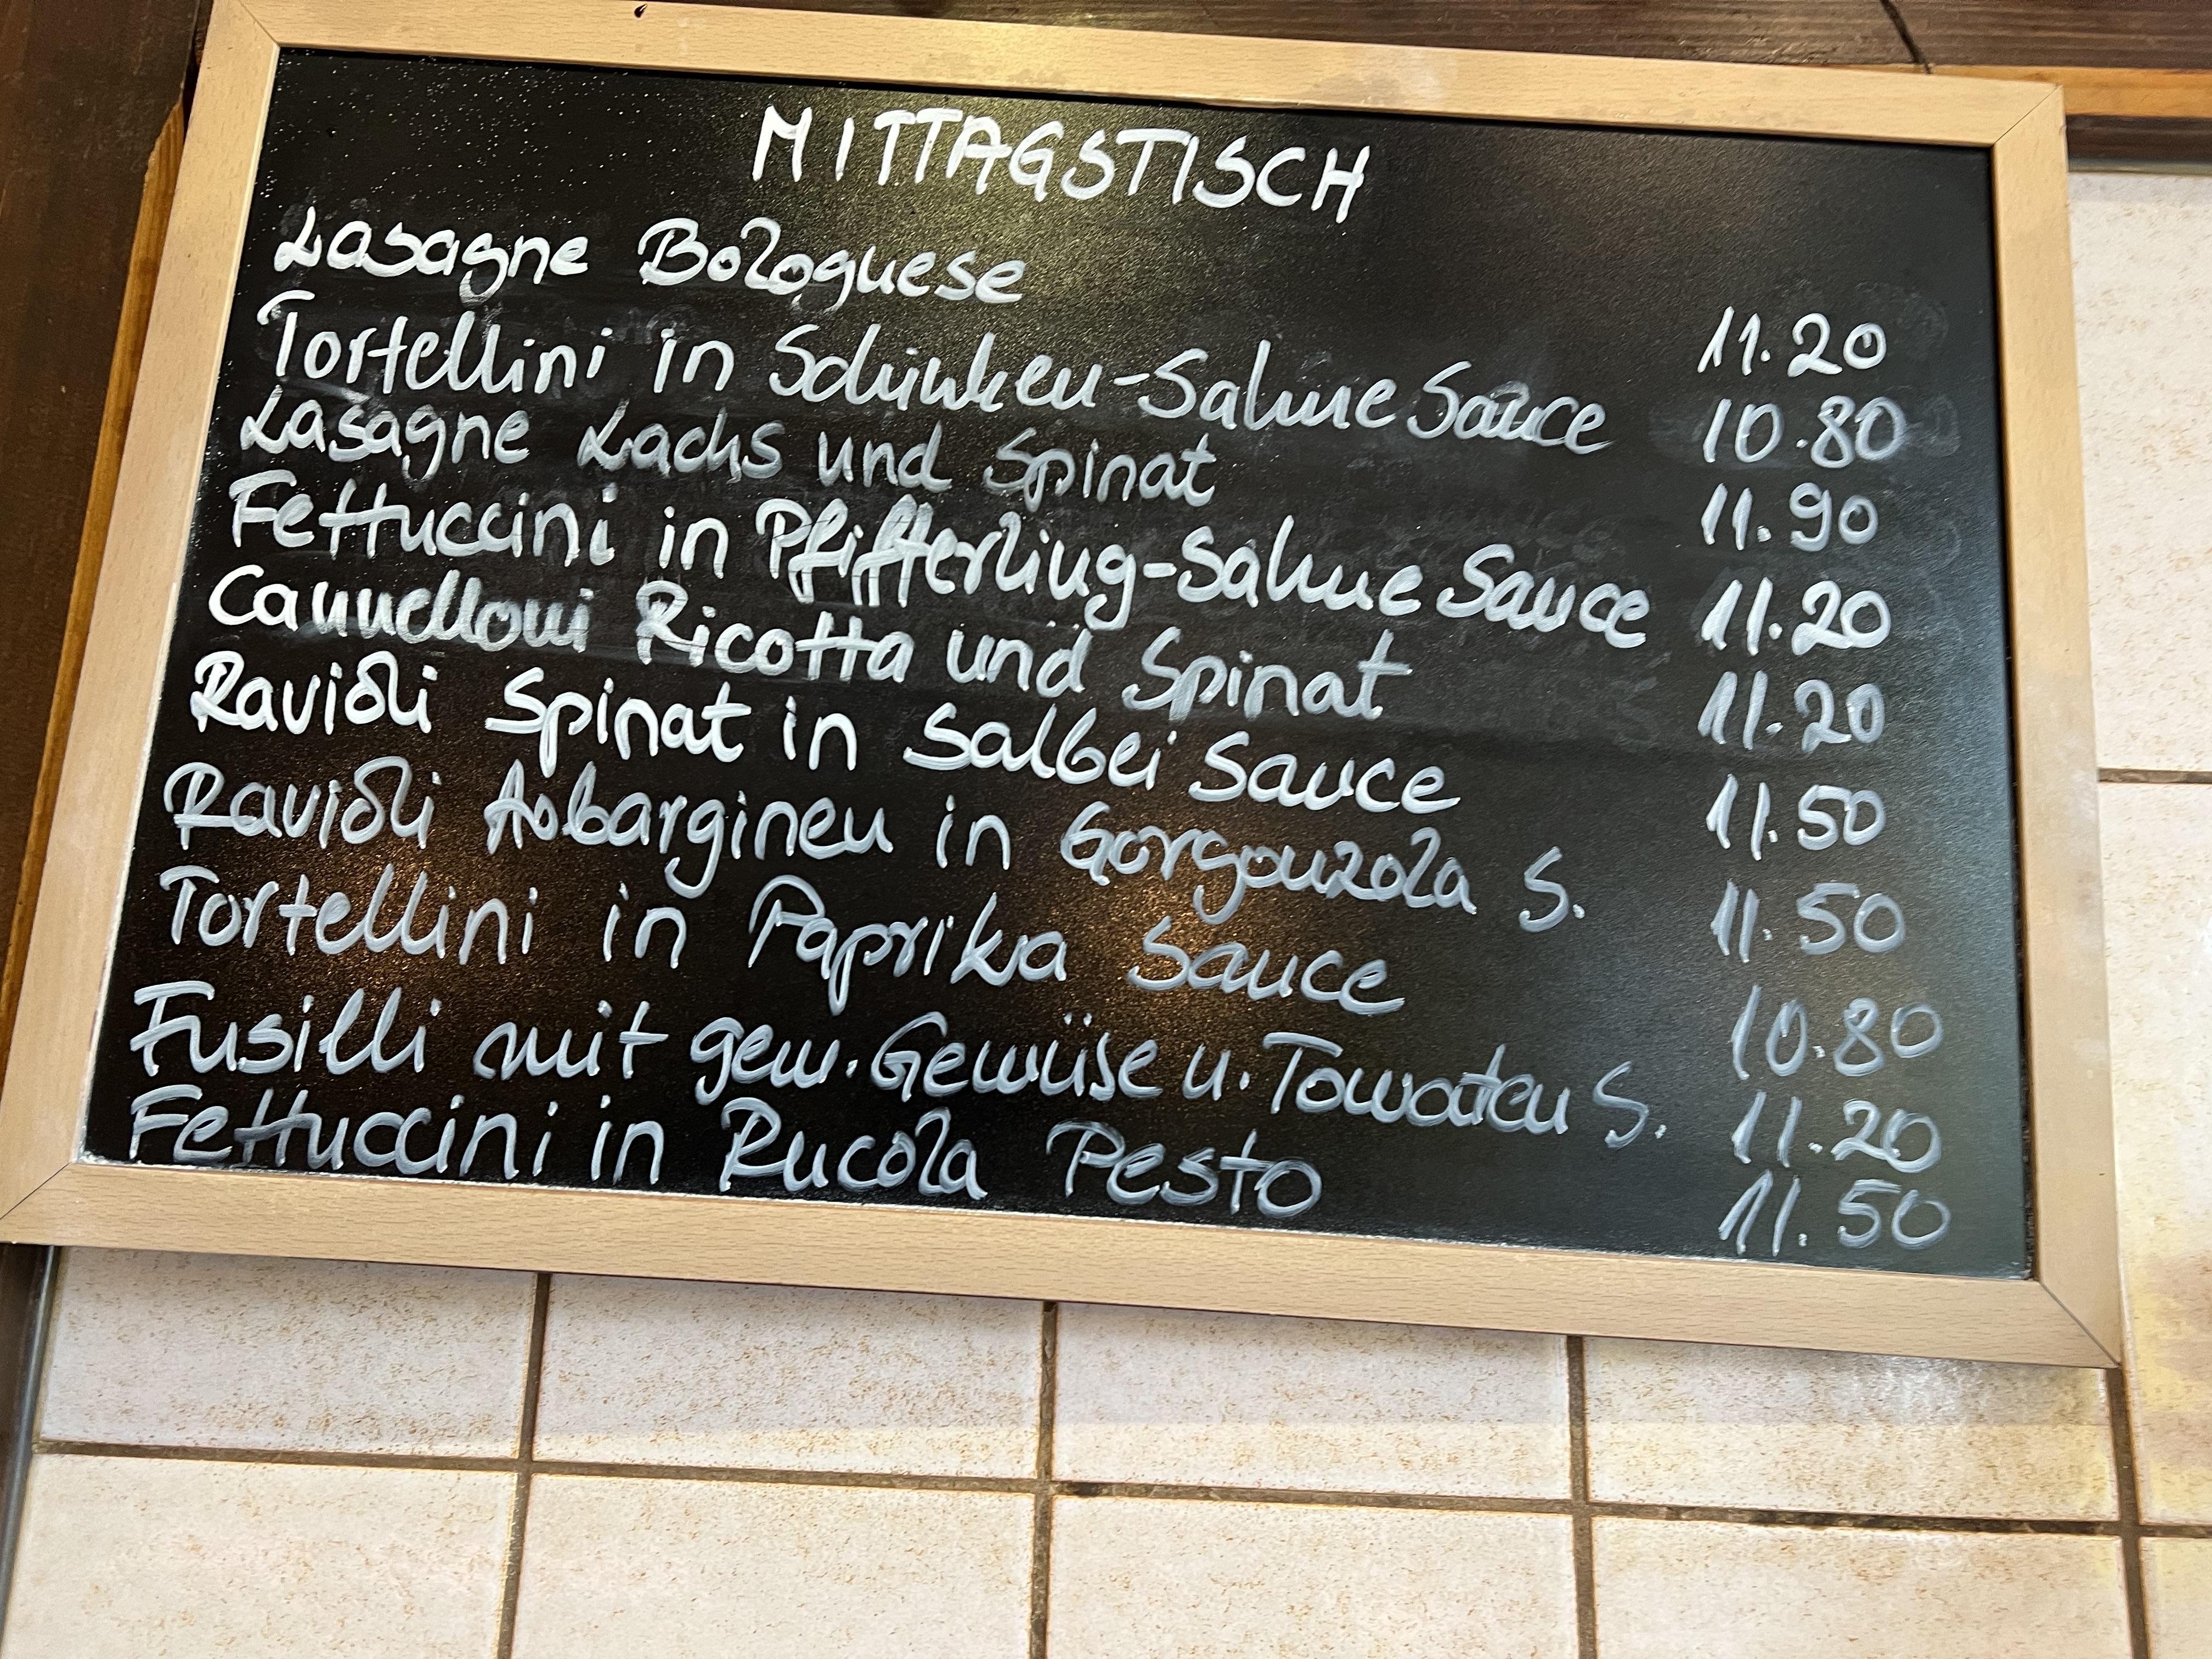 MITTAGSTISCH
Lasagne Bolognese 11.20
Tortellini in Schinken-Sahne Sauce 10.80
Lasagne Lachs und Spinat 11.90
Fettuccini in Pfifferling-Sahne Sauce 11.20
Cannelloni Ricotta und Spinat 11.20
Ravioli Spinat in Salbei Sauce 11.50
Ravioli Aobarginen in Gorgonzola S. 11.50
Tortellini in Paprika Sauce 10.80
Fusilli mit gem. Gemüse u. Tomaten S. 11.20
Fettuccini in Rucola Pesto 11.50